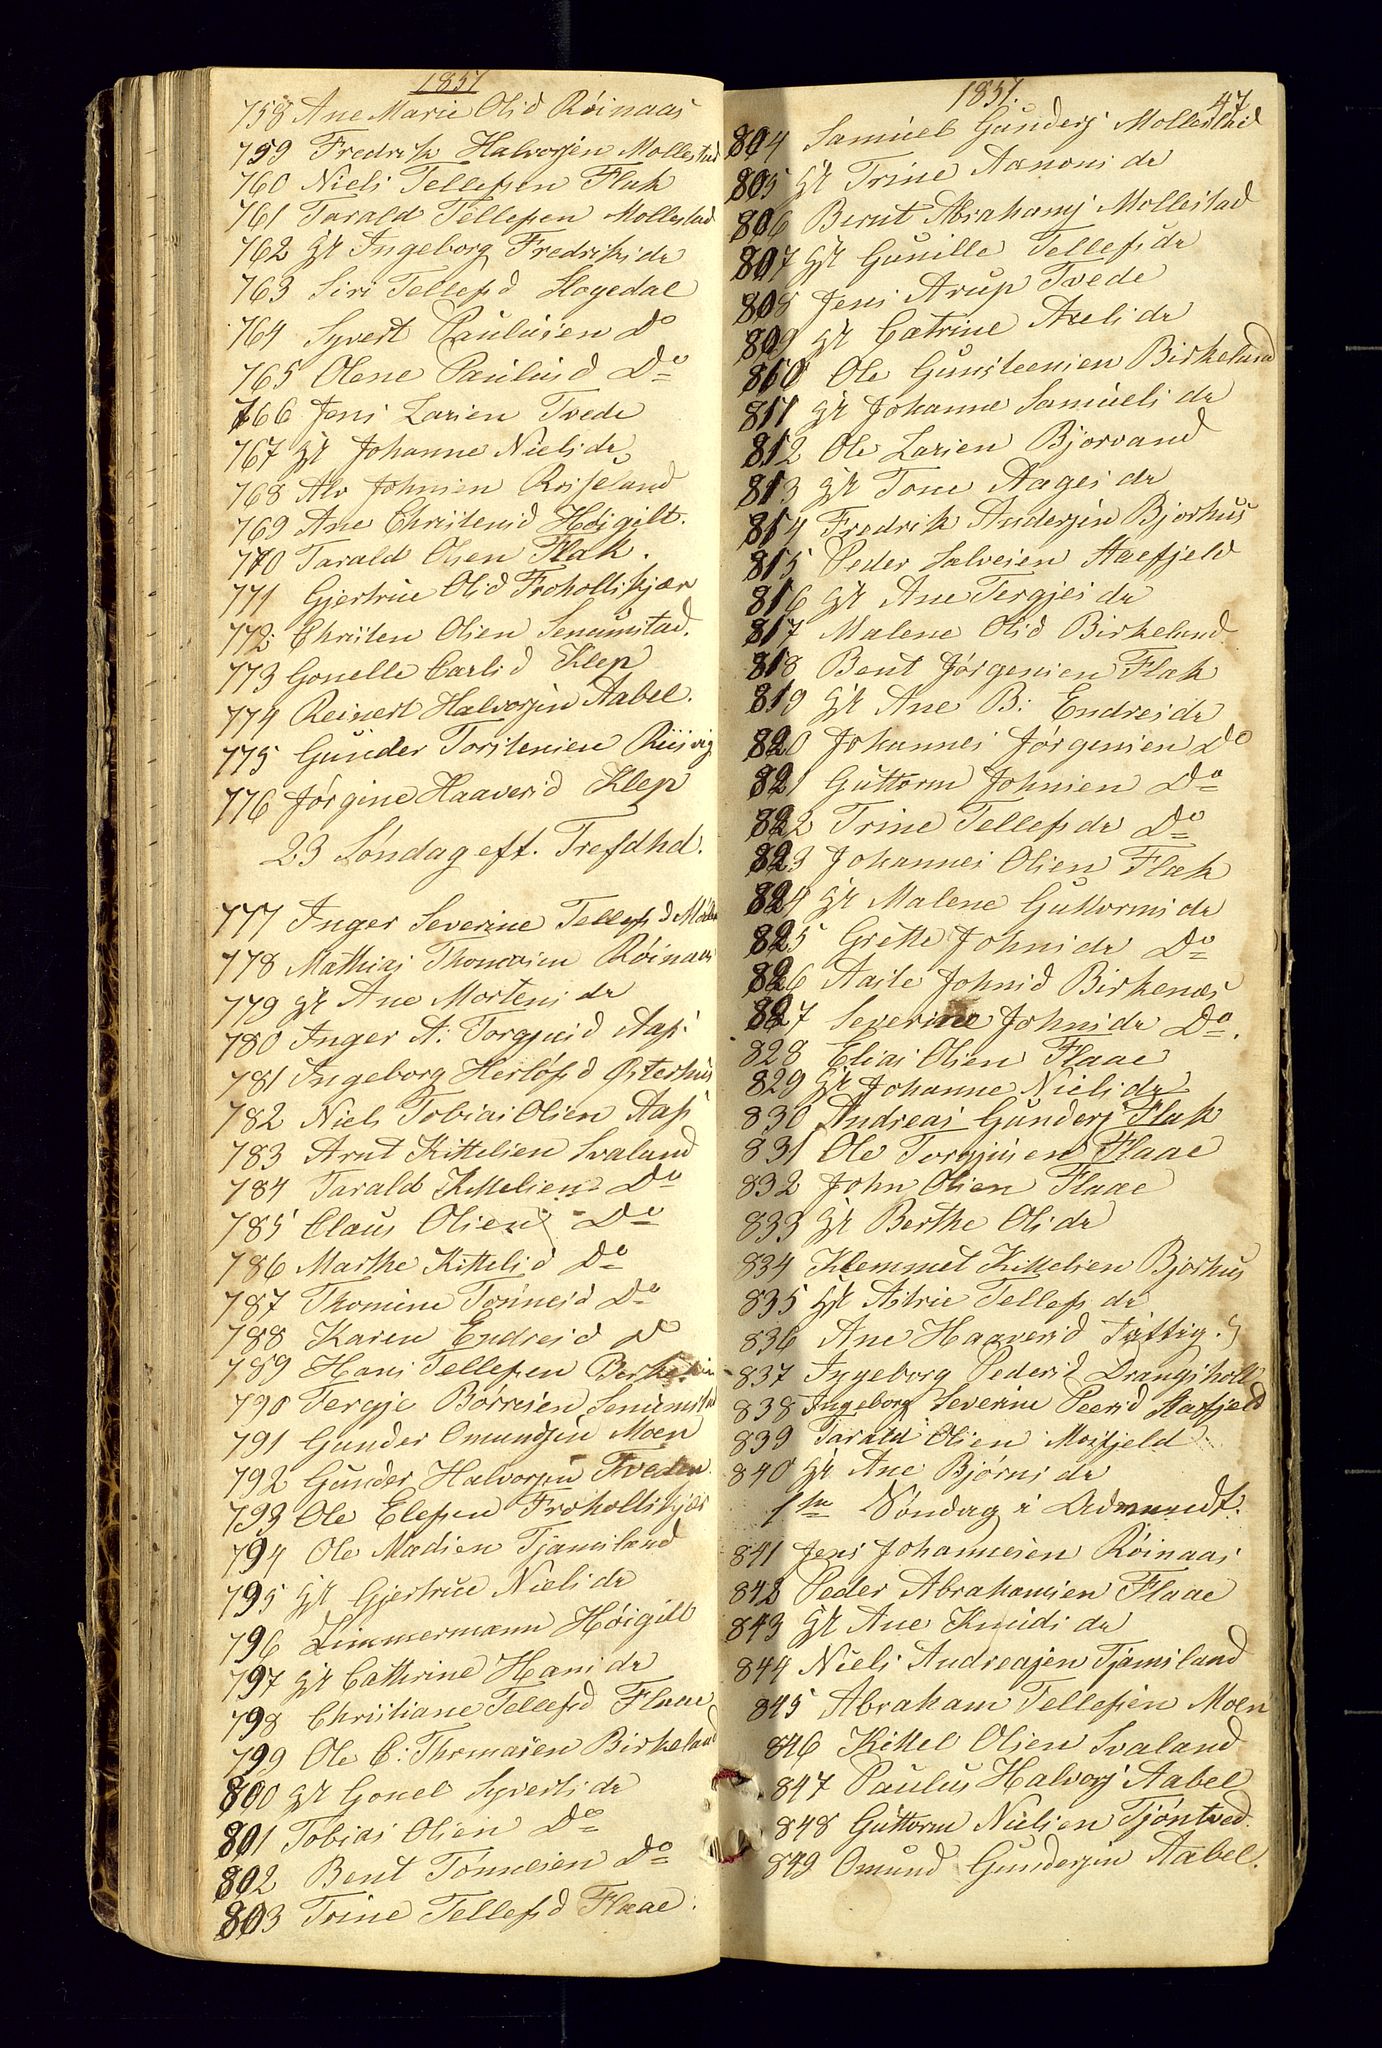 1857
758 Ane Marie Olsd Røinaas
759 Fredrik Halvorsen Mollestad
760 Niels Tellefsen Flak
761 Tarald Tellefsen Mollestad
762 Gt Ingeborg Fredriksdr
763 Siri Tellefsd Hogedal
764 Syvert Paulusen Do
765 Olene Paulusd Do
766 Jens Larsen Tvede
767 Gt Johanne Nielsdr
768 Alv Johnsen Rosseland
769 Ane Christensd Høigilt.
770 Tarald Olsen Flak.
771 Gjertrue Olsd Frohollskjær
772 Christen Olsen Senumstad.
773 Gonelle Carlsd Klep
774 Reinert Halvorsen Aabel.
775 Gunder Torstensen Riisvig
776 Jørgine Haaversd Klep
23 Søndag eft. Trefdhd.
777 Inger Severine Tellefsd
778 Mathias Thomasen Røinaas
779 Gt Ane Mortensdr
780 Inger A: Torgjusd Aas
781 Ingeborg Herlofsd Østerhus
782 Niels Tobias Olsen Aas
783 Arnt Kittelsen Svaland
784 Tarald Kittelsen Do
785 Claus Olsen Do
786 Marthe Kittelsd Do
787 Thomine Tønnesd Do
788 Karen Endresd Do
789 Hans Tellefsen
790 Tergje Børresen Senumstad
791 Gunder Omundsen Moen
792 Gunder Halvorsen Tveden
793 Ole Elefsen Frohollskjær
794 Ole Madsen Tjamsland
795 Gt Gjertrue Nielsdr
796 Zimmermann Høigilt
797 Gt Cathrine Hansdr
798 Christiane Tellefsd Flaae
799 Ole C: Thomasen Birkeland
800 Gt Gonel Syvertsdr
801 Tobias Olsen Do
802 Bent Tønnesen Do
803 Trine Tellefsd Flaae
1857.
47
804 Samuel Gunders Mollestad
805 Gt Trine Aanonsdr
806 Bernt Abrahams Mollestad
807 Gt Gunille Tellefsdr
808 Jens Arup Tvede
809 Gt Catrine Axelsdr
810 Ole Gunsteensen Birkeland
811 Gt Johanne Samuelsdr
812 Ole Larsen Bjorvand
813 Gt Tone Aagesdr
814 Fredrik Andersen Bjorhus
815 Peder Salvesen Haefjeld
816 Gt Ane Tergjesdr
817 Malene Olsd Birkeland
818 Bent Jørgensen Flak
819 Gt Ane B: Endresdr
820 Johannes Jørgensen Do
821 Guttorm Johnsen Do
822 Trine Tellefsdr Do
823 Johannes Olsen Flak
824 Gt Malene Guttormsdr
825 Grette Johnsdr Do
826 Aaste Johnsd Birkenæs
827 Severine Johnsdr Do.
828 Elias Olsen Flaae
829 Gt Johanne Nielsdr
830 Andreas Gunders Flak
831 Ole Torgjusen Flaae
832 John Olsen Flaae
833 Gt Berthe Olsdr
834 Klemmet Kittelsen Bjorhus
835 Gt Astrie Tellefsdr
836 Ane Haaversd Fattig.
837 Ingeborg Pedersd Drangsholt
838 Ingeborg Severine Peersd
839 Tarald Olsen Moisfjeld
840 Gt Ane Bjørnsdr
1ste Søndag i Advendt.
841 Jens Johannesen Røinaas
842 Peder Abrahamsen Flaae
843 Gt Ane Knudsdr
844 Niels Andreasen Tjamsland
845 Abraham Tellefsen Moen
846 Kittel Olsen Svaland
847 Paulus Halvors Aabel
848 Guttorm Nielsen Tjøntved.
849 Omund Gundersen Aabel.